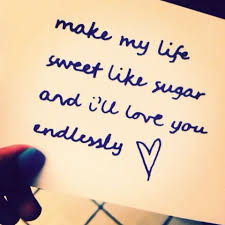 make my life
sweet like sugar
and i'll love you
endlessly ♡